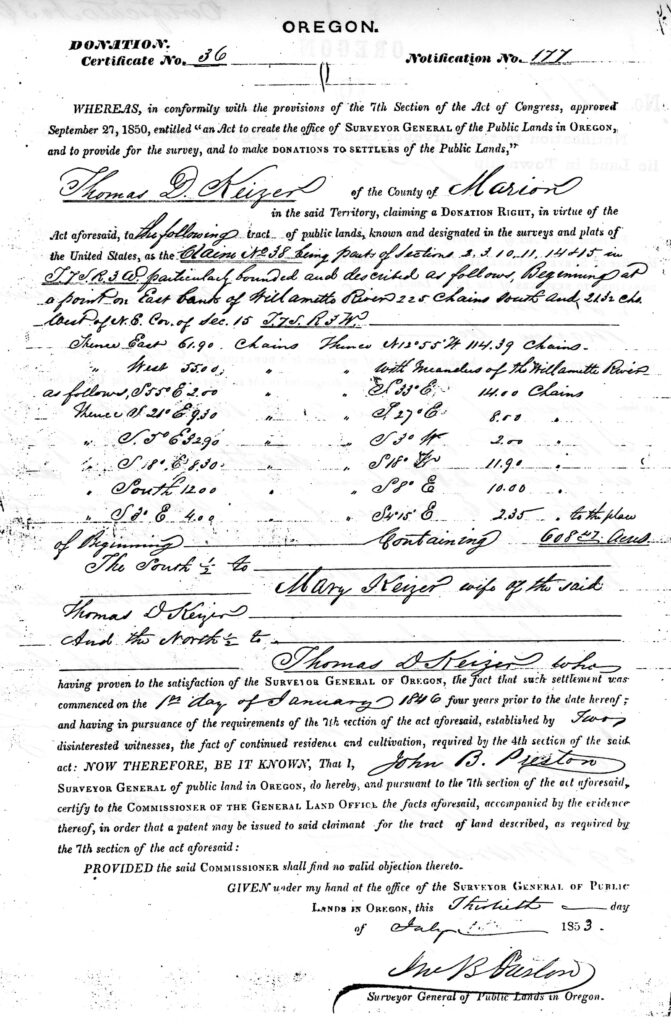 OREGON.
DONATION.
Certificate No. 36 Notification No. 177
WHEREAS, in conformity with the provisions of the 7th Section of the Act of Congress, approved
September 27, 1850, entitled "an Act to create the office of SURVEYOR GENERAL of the Public Lands in OREGON,
and to provide for the survey, and to make DONATIONS TO SETTLERS of the Public Lands,"
Thomas D. Keizer of the County of Marion
in the said Territory, claiming a DONATION RIGHT, in virtue of the
Act aforesaid, to the following tract of public lands, known and designated in the surveys and plats of
the United States, as the Claim No 38 being parts of sections 2. 3. 10. 11. 14 & 15 in
T7S R.3W. particularly bounded and described as follows, Beginning at
a point on East bank of Willamette River 225 Chains South and 2132 chs
West of N.E. Cor. of Sec. 15 T.7S. R3W.
Thence East 61.90 Chains Thence N12°55'W 114.39 Chains.
" West 55.00 " " with Meanders of the Willamette River
as follows, S55°E 2.00 " " S.33°E. 14.00 Chains
Thence S21°E. 9.30 " " S.27°E. 8.00 "
" S.5°E 32.90 " " S3°W 2.00 "
" S18°E 8.30 " " S18°W 11.90 "
" South 12.00 " " S8°E 10.00 "
" S3°E 4.00 " " S4°15'E 2.35 " to the place
of Beginning Containing 608 Acres
The South ½ to
Mary Keizer wife of the said
Thomas D Keizer
And the North ½ to
Thomas D Keizer who
having proven to the satisfaction of the SURVEYOR GENERAL OF OREGON, the fact that such settlement was
commenced on the 1st day of January 1846 four years prior to the date hereof;
and having in pursuance of the requirements of the 7th section of the act aforesaid, established by Two
disinterested witnesses, the fact of continued residence and cultivation, required by the 4th section of the said
act: NOW THEREFORE, BE IT KNOWN, That I, John B. Preston
SURVEYOR GENERAL of public land in OREGON, do hereby, and pursuant to the 7th section of the act aforesaid,
certify to the COMMISSIONER OF THE GENERAL LAND OFFICE the facts aforesaid, accompanied by the evidence
thereof, in order that a patent may be issued to said claimant for the tract of land described, as required by
the 7th section of the act aforesaid:
PROVIDED the said COMMISSIONER shall find no valid objection thereto.
GIVEN under my hand at the office of the SURVEYOR GENERAL OF PUBLIC
LANDS IN OREGON, this Thirtieth day
of July 1853.
Jno B Preston
Surveyor General of Public Lands in Oregon.